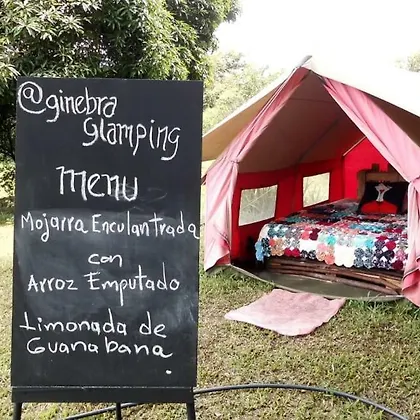 @ginebra
Glamping
menu
Mojarra Enculantrada
con
Arroz Emputado
Limonada de
Guanabana